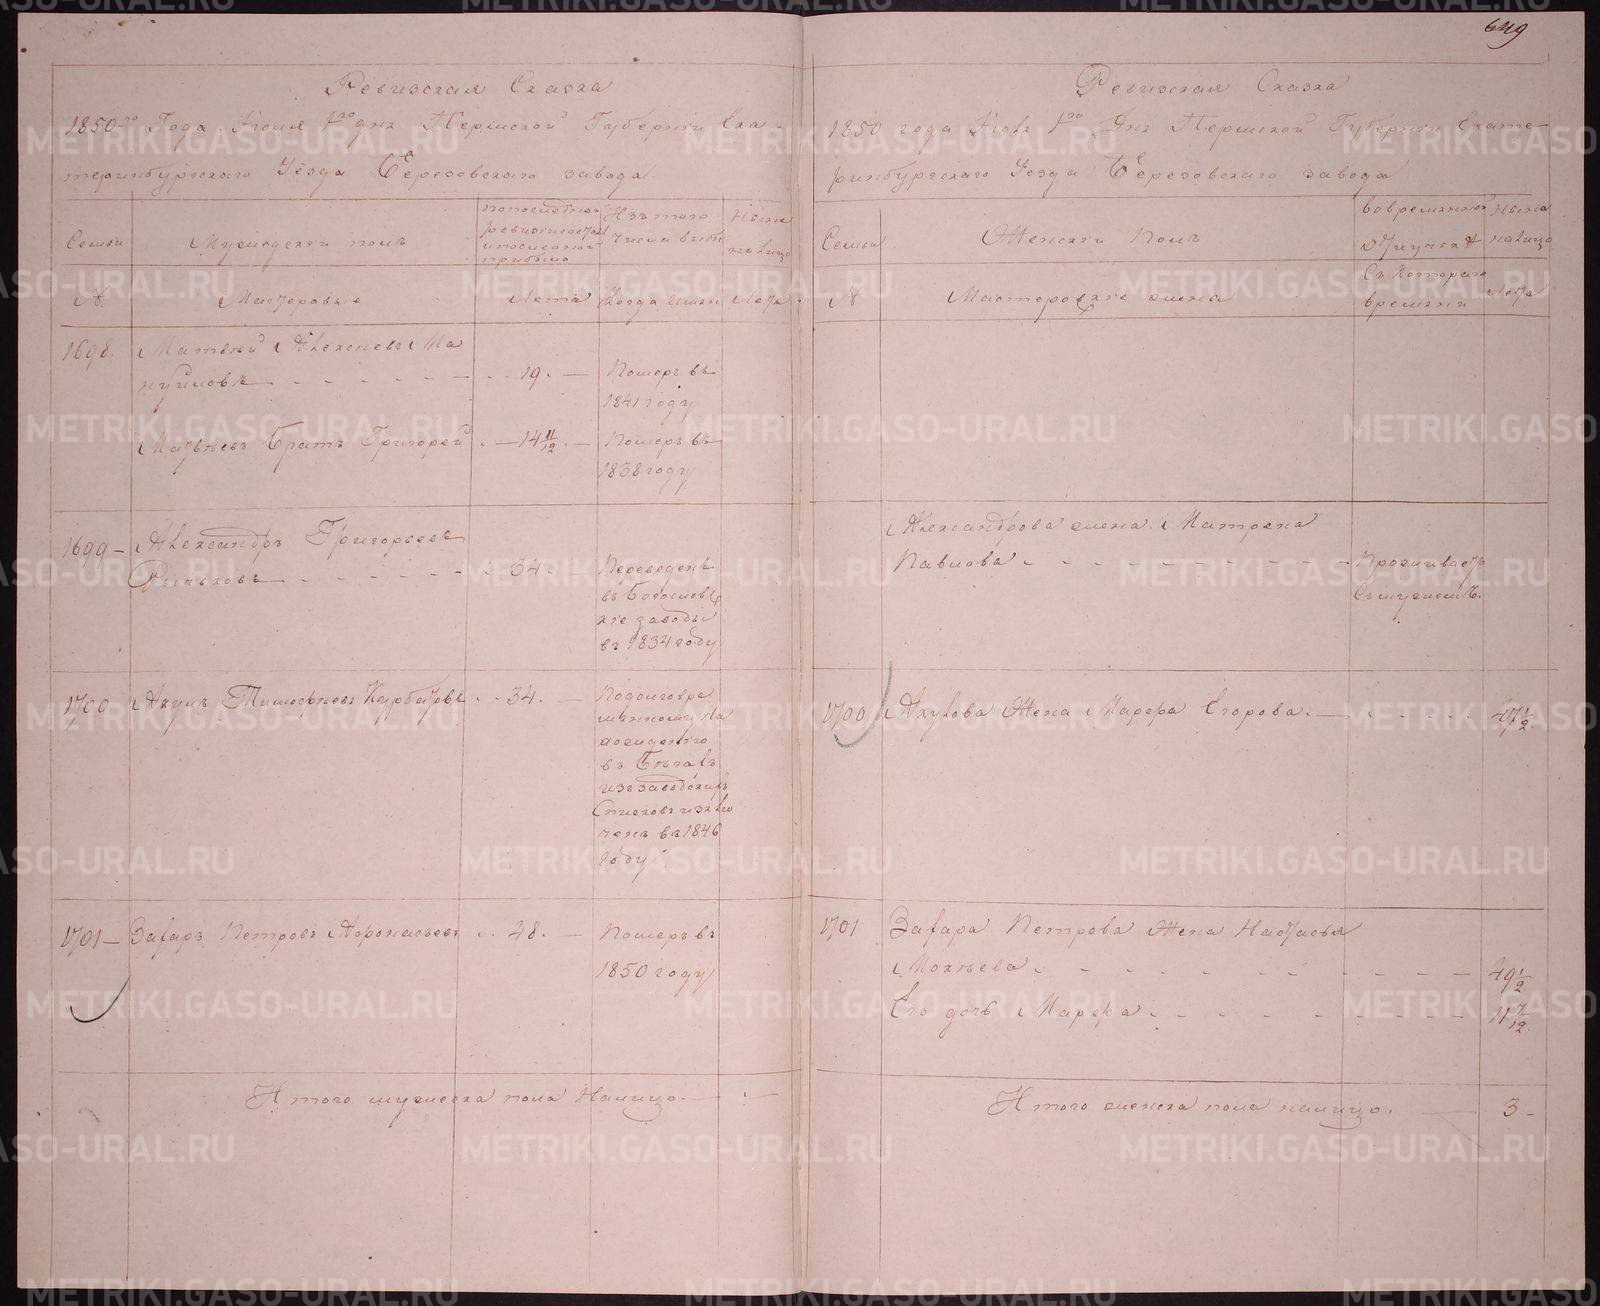 649
Ревизская Сказка
1850го Года Июля 1го дня Пермской Губерніи Ека-
теринбургскаго Уѣзда Березовскаго завода
Семьи
Мужидескій полъ
по последней
ревизіи состояло
и после оной
прибыло
Изъ того
числа выбыло
Ныне
на лицо
№
Мастеровые
Лета
Когда имянно
Лета
1698.
Матвѣй Алексеевъ Ма
нуйловъ - - - - - -
19. —
Померъ въ
1841 году
Матвѣевъ братъ Григорей
14 11/12. —
Померъ въ
1838 году
1699 —
Александръ Григорьевъ
Рычковъ - - - - - -
34.
Переведенъ
въ Богословс
кіе заводы
въ 1834 году
1700
Акулъ Тимофѣевъ Курбатовъ
34. —
въ Бѣгахъ
изъ заводскихъ
Списковъ изклю
ченъ въ 1846
году
1701 —
Захаръ Петровъ Афонасьевъ
48. —
Померъ въ
1850 году
Итого мужеска пола Налицо. —
Ревизская Сказка
1850 года Июля 1го Дня Пермской Губерніи Екате-
ринбургскаго Уѣзда Березовскаго завода
Семьи
Женскій Полъ
во временной
отлучкѣ
Ныне
налицо
№
Мастеровскіе жена
Съ Котораго
времяни
Лета
Александрова жена Матрена
Павлова - - - - - - - - -
Проживаетъ
съ мужемъ.
1700
Акулова Жена Марфа Егорова. —
47 1/2
1701
Захара Петрова Жена Настасья
Мокѣева - - - - - - - - -
49 1/2
Его дочь Марфа - - - - - - -
11 7/12
Итого женска пола налицо. —
3 -
METRIKI.GASO-URAL.RU